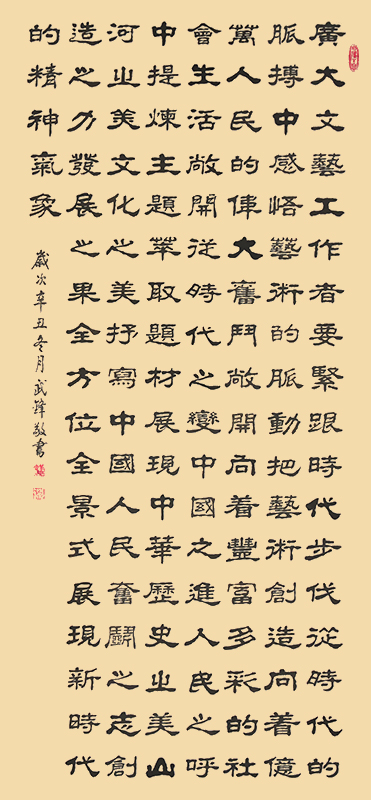 廣大文藝工作者要緊跟時代步伐從時代的
脈搏中感悟藝術的脈動把藝術創造向着億
萬人民的偉大奮鬥敞開向着豐富多彩的社
會生活敞開從時代之變中國之進人民之呼
中提煉主題萃取題材展現中華歷史之美山
河之美文化之美抒寫中國人民奮鬭之志創
造之力發展之果全方位全景式展現新時代
的精神氣象
歲次辛丑冬月武鋒敬書